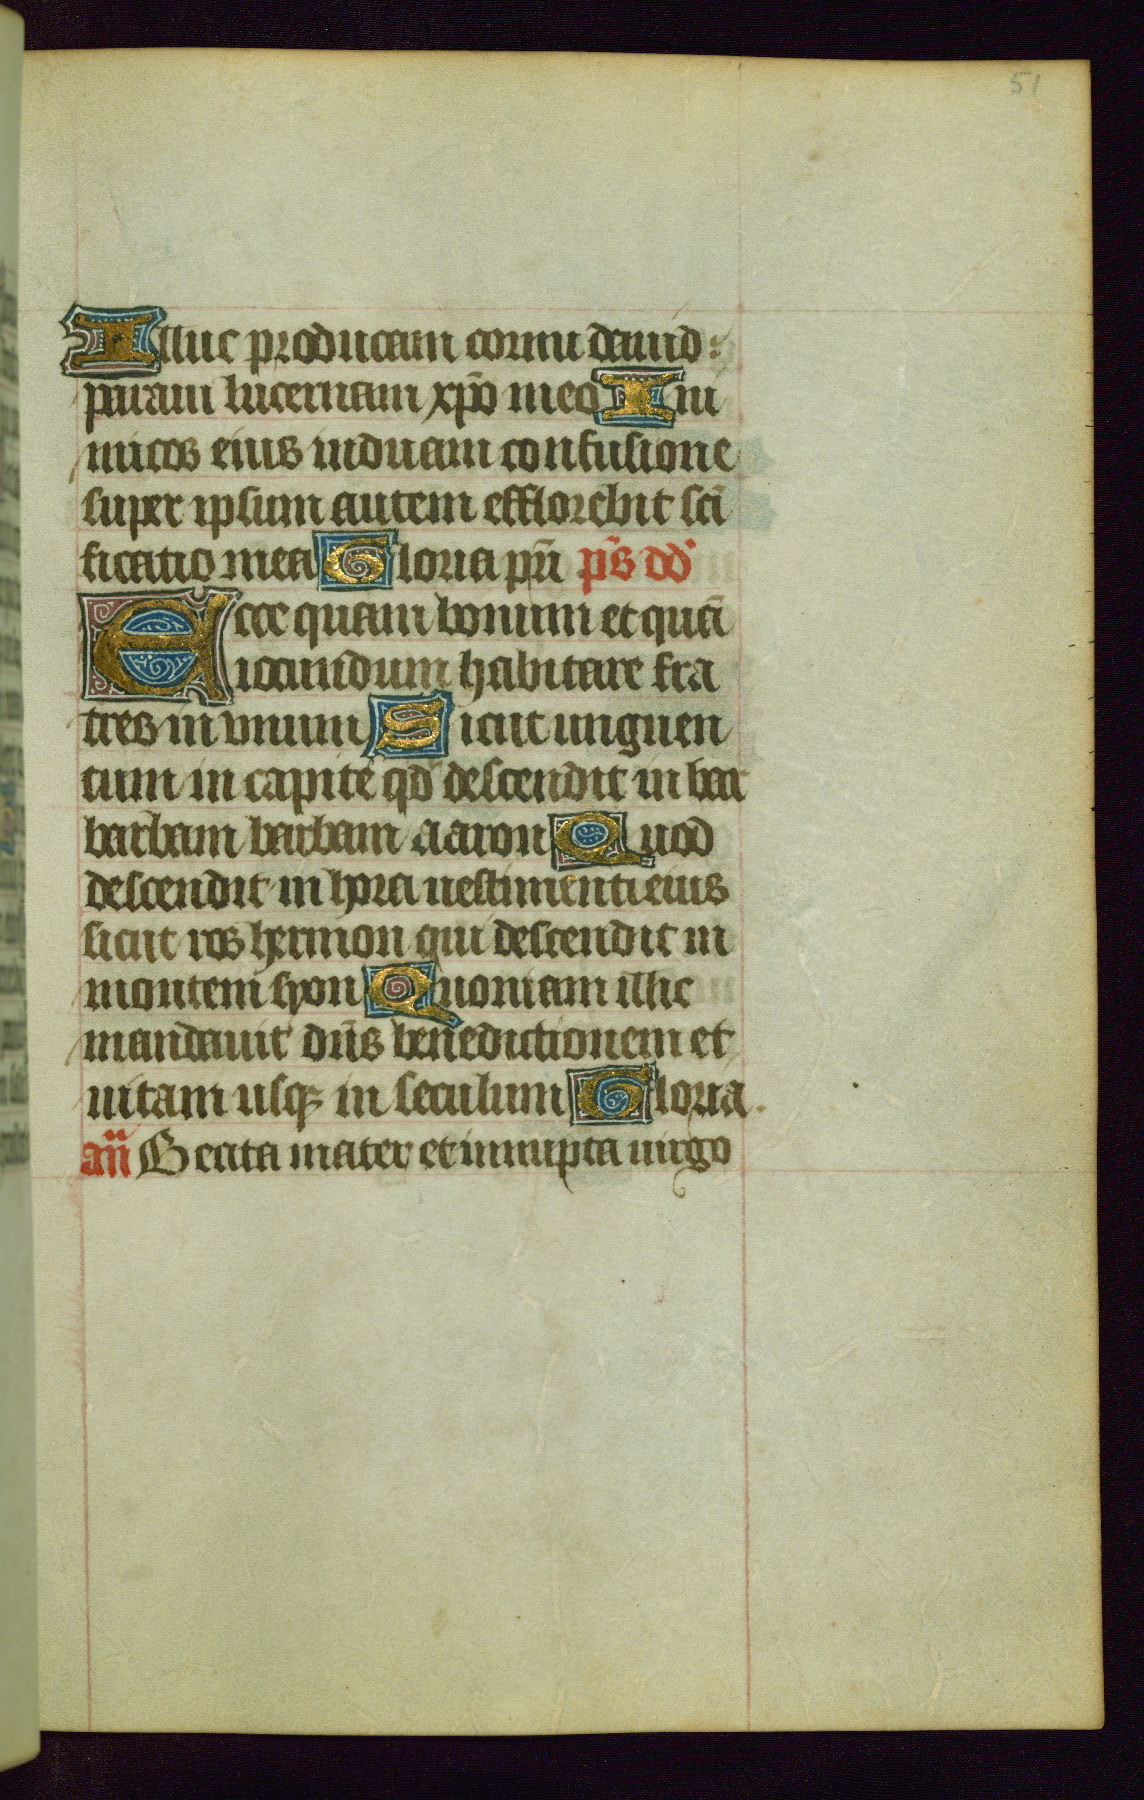 51
Illuc producam cornu dauid :
paraui lucernam xp̄o meo Ini
micos eius induam confusione
super ipsum autem efflorebit scī
ficatio mea Gloria pr̄i p̄s dd̄
Ecce quam bonum et quā
iocundum habitare fra
tres in vnum Sicut unguen
tum in capite qd̄ descendit in bar
barbam barbam aaron Quod
descendit in hora uestimenti eius
sicut ros hermon qui descendit in
montem syon Quoniam illic
mandauit dn̄s benedictionem et
uitam usqꝫ in seculum Gloria.
an̄ Beata mater et innupta uirgo